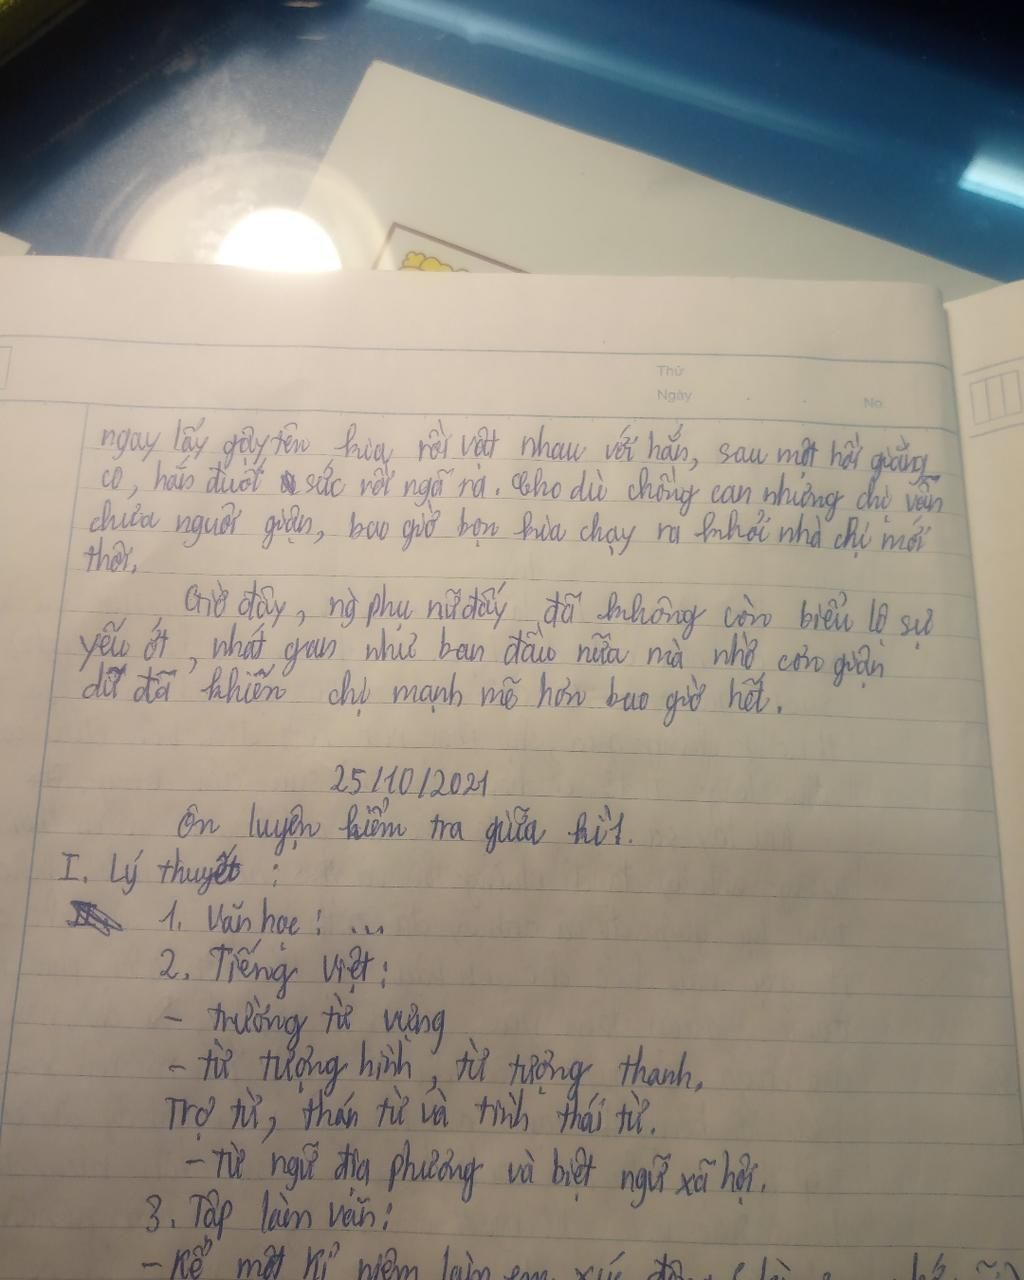 Thứ
Ngày
No
ngay lấy gậy tên kia rồi vật nhau với hắn, sau một hồi giằng
co, hắn đuối sức rồi ngã ra. Cho dù chồng can nhưng chị vẫn
chưa nguôi giận, bao giờ bọn kia chạy ra khỏi nhà chị mới
thôi.
Giờ đây, ng̀ phụ nữ đấy đã không còn biểu lộ sự
yếu ớt, nhát gan như ban đầu nữa mà nhờ cơn giận
dữ đã khiến chị mạnh mẽ hơn bao giờ hết.
25/10/2021
Ôn luyện kiểm tra giữa kì 1.
I. Lý thuyết :
1. Văn học : ...
2. Tiếng Việt :
- trường từ vựng
- từ tượng hình, từ tượng thanh,
Trợ từ, thán từ và tình thái từ.
- từ ngữ địa phương và biệt ngữ xã hội.
3. Tập làm văn :
- Kể một kỉ niệm làm em xúc động